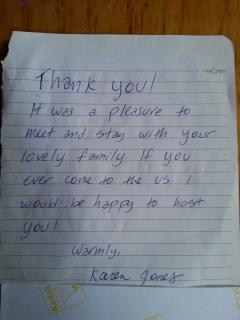 Thank you!
It was a pleasure to
meet and stay with your
lovely family. If you
ever come to the US I
would be happy to hosrt
you!
Warmly,
Karen Jones